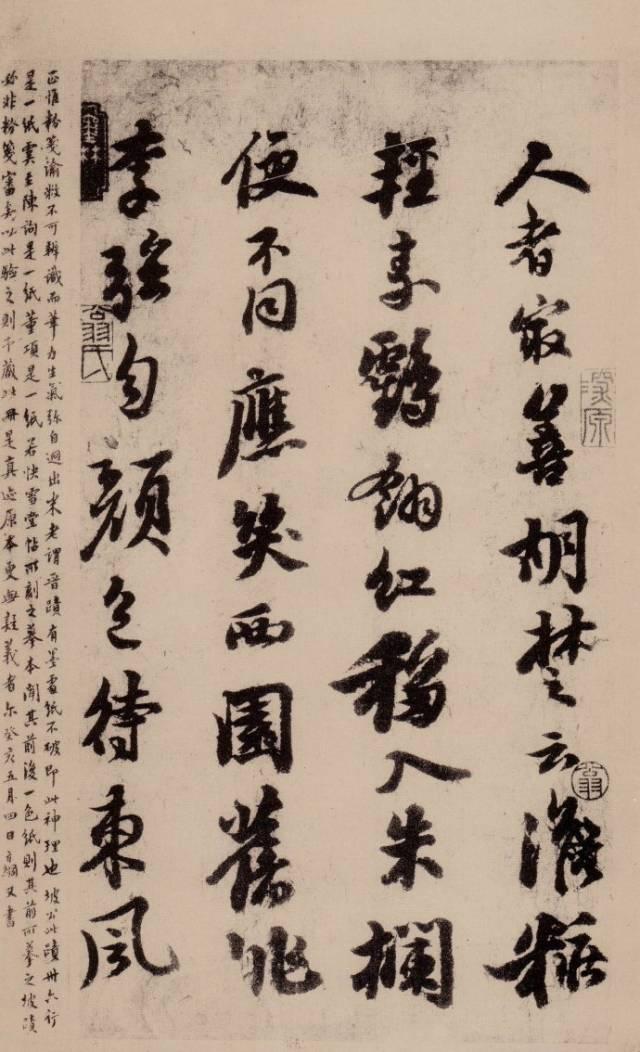 人者㝡善胡楚云澹粧
輕素鶴翎紅移入朱欄
便不同應笑西園舊桃
李強勻顏色待東風
正惟粉箋渝敝不可辨識而筆力生氣弥自迥出米老謂晉蹟有墨處紙不破即此神理也坡公此蹟卅六行
是一紙虞至陳詢是一紙董項是一紙若快雪堂帖所刻之摹本聞其前後一色紙則其前所摹之坡蹟
非粉箋審矣以此驗之則予藏此冊是真迹原本更無疑義者尔癸亥五月四日方綱又書
墨林
翁氏
翁